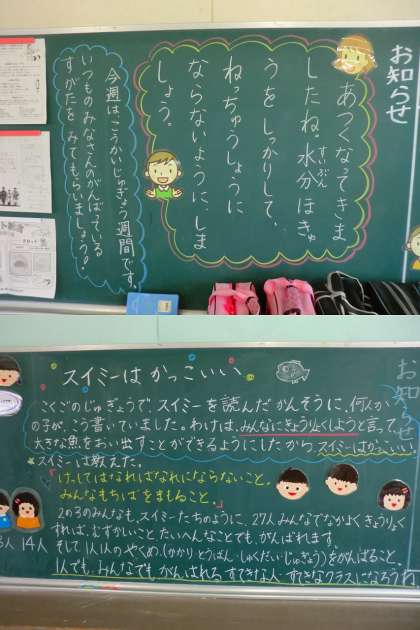 お知らせ
あつくなってきま
したね。水分ほきゅ
すいぶん
うを しっかりして、
ねっちゅうしょうに
ならないようにしま
しょう。
今週はこうかいじゅぎょう週間です。
いつものみなさんのがんばっている
すがたを みてもらいましょう!
お知らせ
スイミーは かっこいい
こくごのじゅぎょうで、スイミーを読んだかんそうに、何人か
の子が、こう書いていました。わけは、みんなにきょう力しようと言って、
大きな魚をおい出すことができるようにしたから。スイミーはかっこいい。
スイミーは教えた。
けっしてはなればなれにならないこと。
みんなもちばをまもること。
2の3のみんなも、スイミーたちのように、27人みんなでなかよくきょうりょく
すれば、むずかいこと、たいへんなことでも、がんばれます。
そして 1人1人のやくめ、(かかり とうばん・しゅくだい・じゅぎょう)をがんばること。
1人でも、みんなでもがんばれる、すてきな人 すてきなクラスになろうね
13人 14人